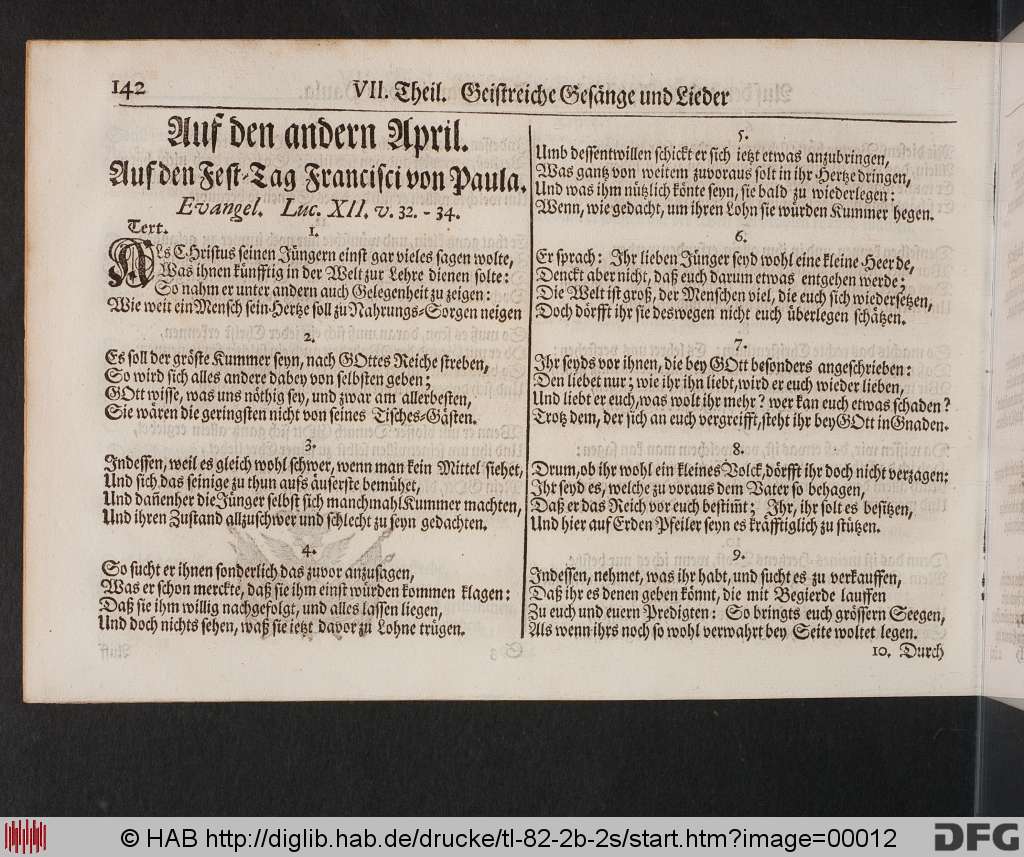 142
VII. Theil. Geistreiche Gesänge und Lieder
Auf den andern April.
Auf den Fest-Tag Francisci von Paula.
Evangel. Luc. XII. v. 32. - 34.
Text.
1.
ALs CHristus seinen Jüngern einst gar vieles sagen wolte,
Was ihnen künfftig in der Welt zur Lehre dienen solte:
So nahm er unter andern auch Gelegenheit zu zeigen:
Wie weit ein Mensch sein Hertze soll zu Nahrungs-Sorgen neigen
2.
Es soll der gröste Kummer seyn, nach GOttes Reiche streben,
So wird sich alles andere dabey von selbsten geben;
GOtt wisse, was uns nöthig sey, und zwar am allerbesten,
Sie wären die geringsten nicht von seines Tisches-Gästen.
3.
Indessen, weil es gleich wohl schwer, wenn man kein Mittel siehet,
Und sich das seinige zu thun aufs äuserste bemühet,
Und dañenher die Jünger selbst sich manchmahl Kummer machten,
Und ihren Zustand allzuschwer und schlecht zu seyn gedachten.
4.
So sucht er ihnen sonderlich das zuvor anzusagen,
Was er schon merckte, daß sie ihm einst würden kommen klagen:
Daß sie ihm willig nachgefolgt, und alles lassen liegen,
Und doch nichts sehen, waß sie ietzt davor zu Lohne trügen.
5.
Umb dessentwillen schickt er sich ietzt etwas anzubringen,
Was gantz von weitem zuvoraus solt in ihr Hertze dringen,
Und was ihm nützlich könte seyn, sie bald zu wiederlegen:
Wenn, wie gedacht, um ihren Lohn sie würden Kummer hegen.
6.
Er sprach: Ihr lieben Jünger seyd wohl eine kleine Heerde,
Denckt aber nicht, daß euch darum etwas entgehen werde;
Die Welt ist groß, der Menschen viel, die euch sich wiedersetzen,
Doch dörfft ihr sie deswegen nicht euch überlegen schätzen.
7.
Ihr seyds vor ihnen, die bey GOtt besonders angeschrieben:
Den liebet nur; wie ihr ihn liebt, wird er euch wieder lieben,
Und liebt er euch, was wolt ihr mehr? wer kan euch etwas schaden?
Trotz dem, der sich an euch vergreifft, steht ihr bey GOtt in Gnaden.
8.
Drum, ob ihr wohl ein kleines Volck, dörfft ihr doch nicht verzagen:
Ihr seyd es, welche zu voraus dem Vater so behagen,
Daß er das Reich vor euch bestim̃t; Ihr, ihr solt es besitzen,
Und hier auf Erden Pfeiler seyn es kräfftiglich zu stützen.
9.
Indessen, nehmet, was ihr habt, und sucht es zu verkauffen,
Daß ihr es denen geben könnt, die mit Begierde lauffen
Zu euch und euern Predigten: So bringts euch grössern Seegen,
Als wenn ihrs noch so wohl verwahrt bey Seite woltet legen.
10. Durch
© HAB http://diglib.hab.de/drucke/tl-82-2b-2s/start.htm?image=00012
DFG